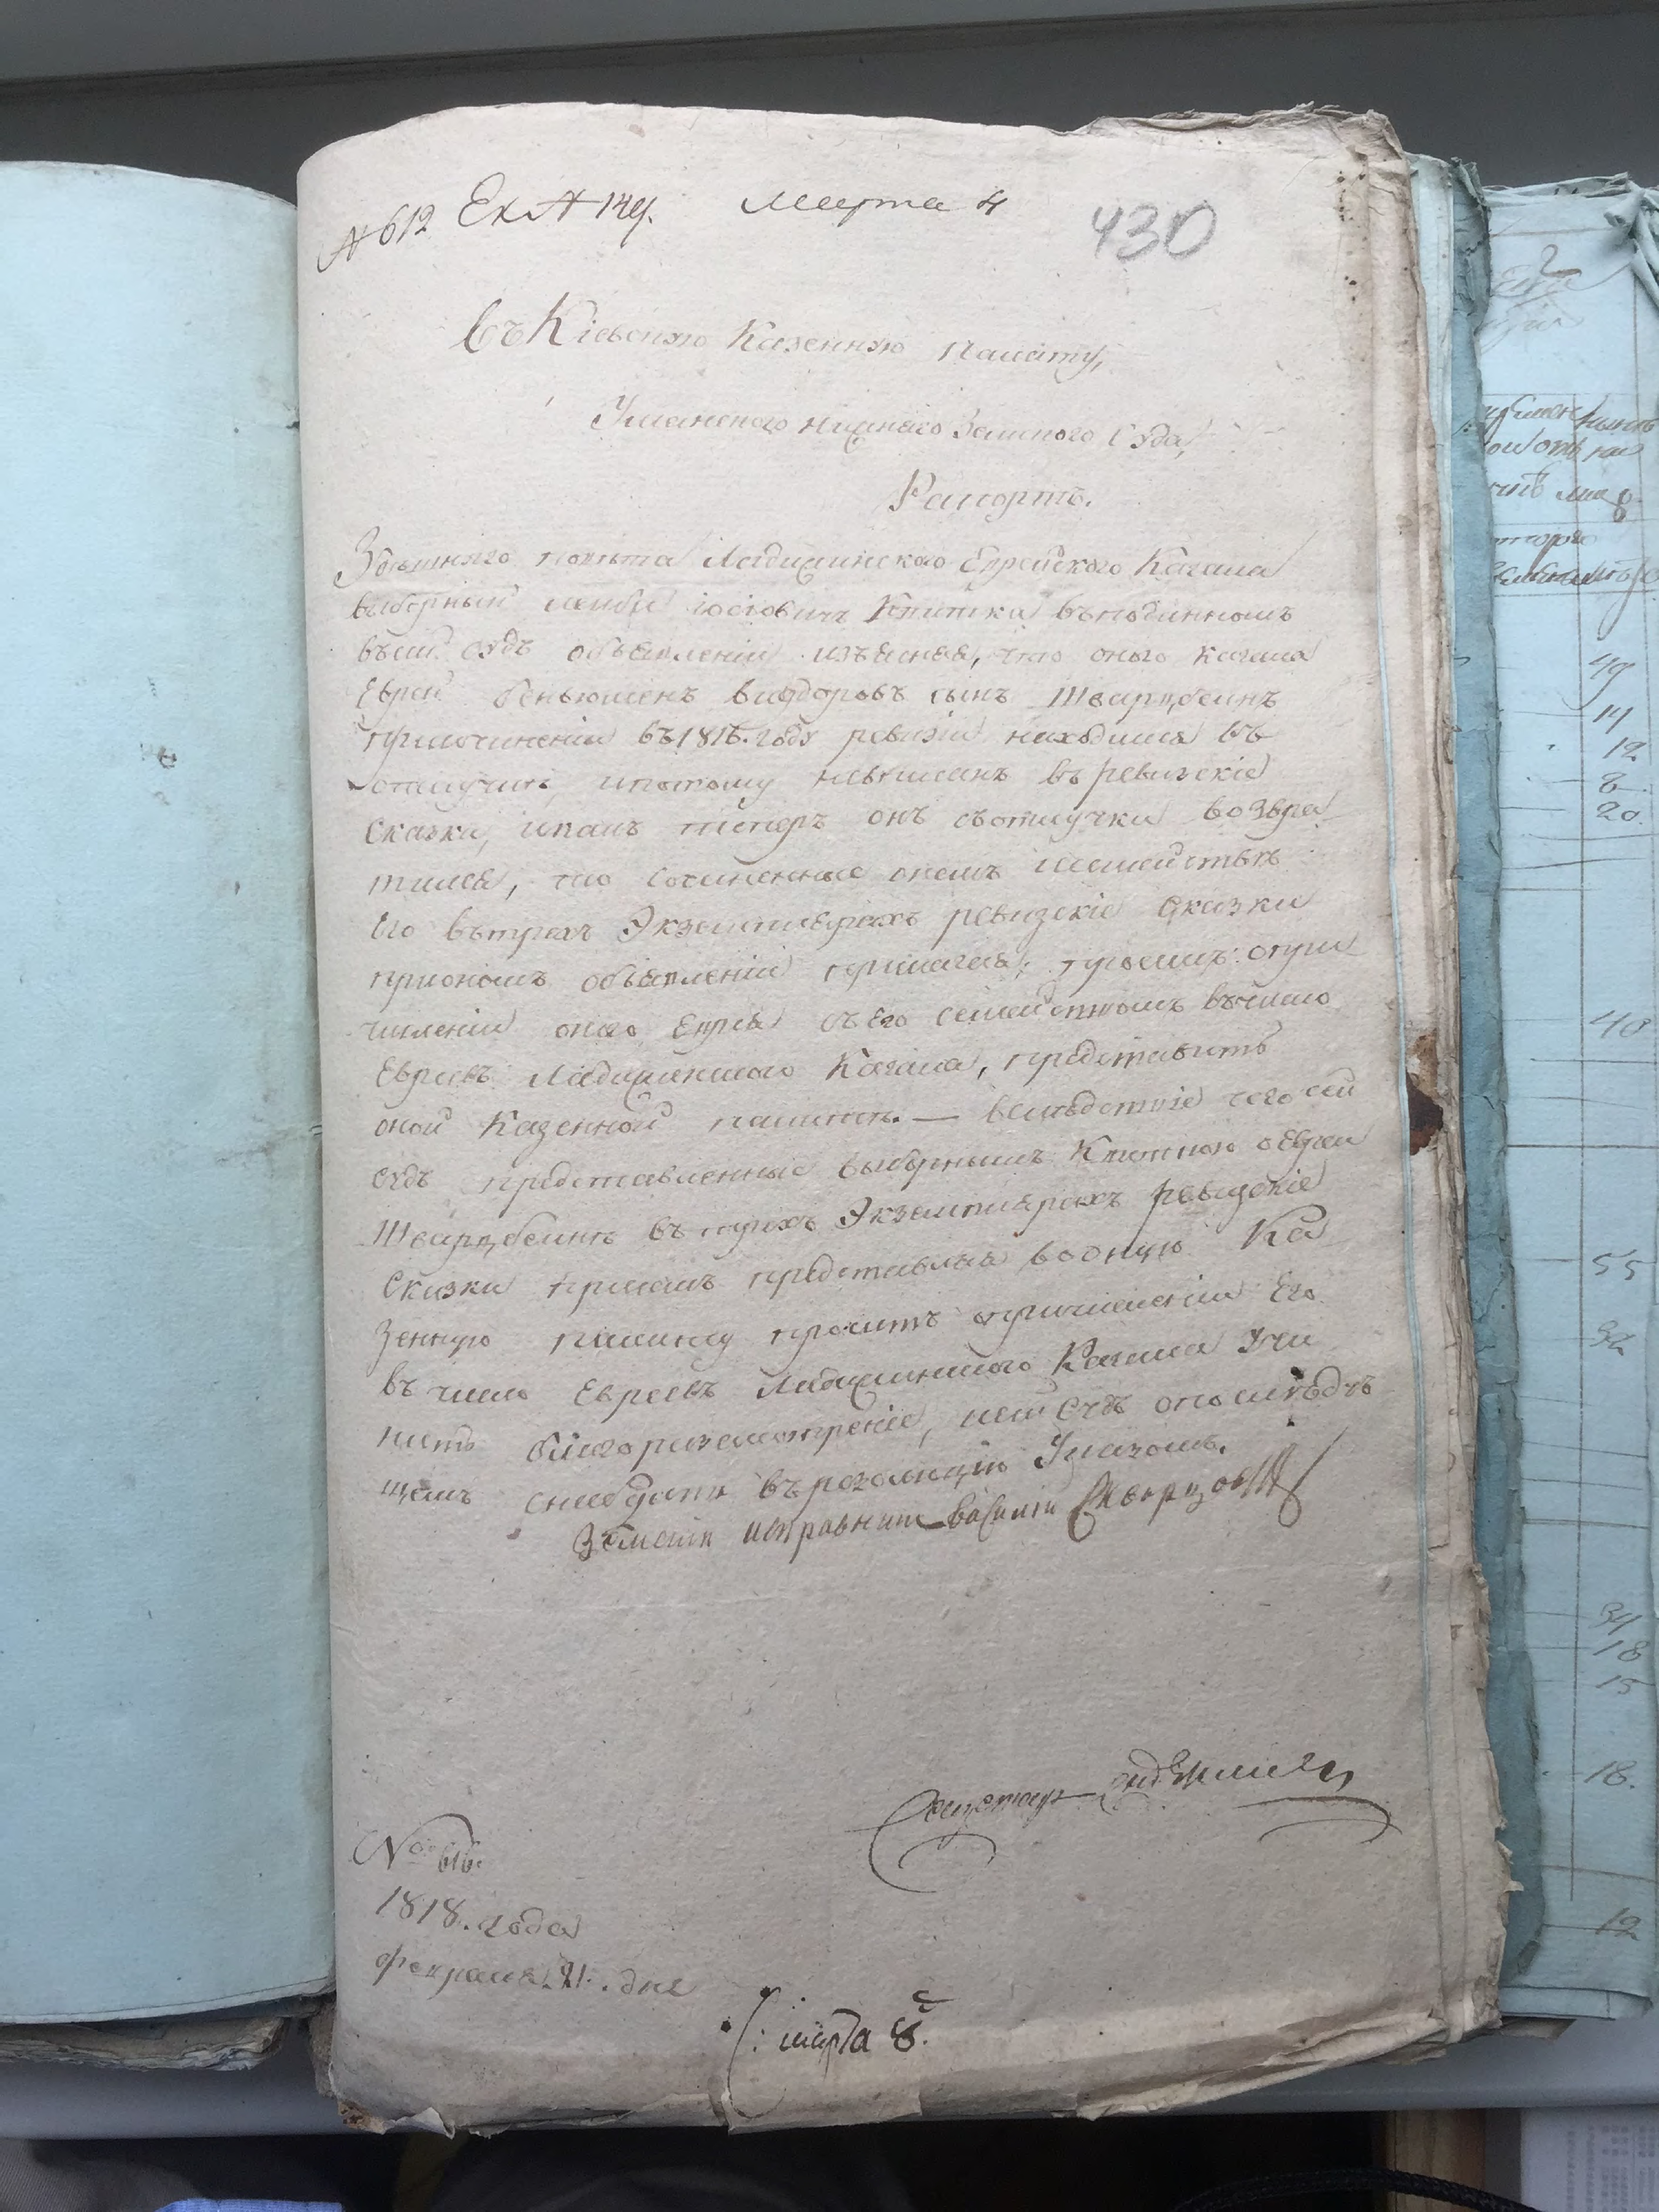 № 612 Марта 4
430
Въ Кіевскую Казенную палату,
Уманского нижнего Земского Суда,
Рапортъ.
Здѣшняго повѣта Ладыжинского Еврейского Кагала
выборный Лейба Іосіовичъ Квитка въ поданномъ
въсей Судъ объявленіи изъясняя, что оного кагала
Еврей Беньюменъ сынъ Шварцбеинъ
при сочиненіи въ 1816. году ревизіи находился въ
отлучкѣ, и потому невписанъ въ ревизскіе
сказки, и какъ теперъ онъ съ отлучки возвра
тился, то сочиненные онемъ и семействѣ
Его въ трехъ Экземплярахъ ревизскіе сказки
при ономъ объявленіи прилагая; просилъ: опри
численіи оного Еврея съ Его семействомъ въ число
Евреевъ Ладыжинского Кагала, представить
оной Казенной палатѣ. — Вслѣдствіе чего сей
Судъ представленные выборнымъ Квиткою о Евреи
Шварцбеинѣ въ трехъ Экземплярахъ ревизскіе
сказки присемъ представляя во оную Ка
зенную палату проситъ опричисленіи Его
въ число Евреевъ Ладыжинского Кагала учи
нить благоразсмотреніе, и сей Судъ о послѣдую
щемъ снабдить въ резолюцію Указомъ.
Земскій исправникъ Василій Скворцовъ
Секретарь
№ 616.
1818. года
февраля 21. дня
марта 8.